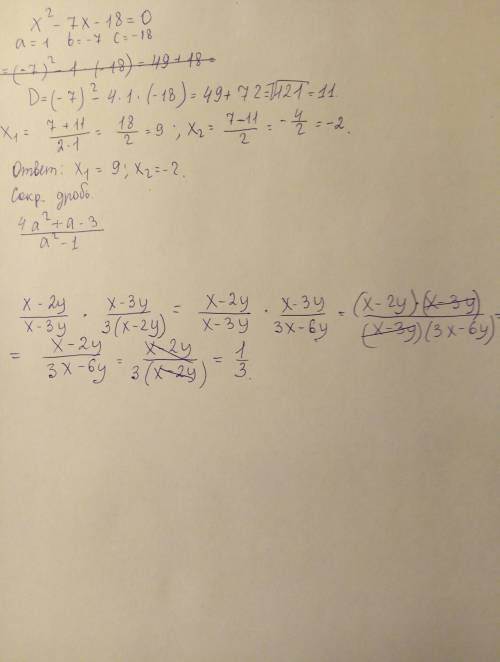 x² - 7x - 18 = 0
a = 1 b = -7 c = -18
= (-7)² - 1 · (-18) = 49 + 18 =
D = (-7)² - 4 · 1 · (-18) = 49 + 72 = √121 = 11.
x₁ = (7 + 11)/(2·1) = 18/2 = 9; x₂ = (7 - 11)/2 = -4/2 = -2.
Ответ: x₁ = 9; x₂ = -2.
Сокр. дробь.
(4a² + a - 3)/(a² - 1)
(x - 2y)/(x - 3y) · (x - 3y)/(3(x - 2y)) = (x - 2y)/(x - 3y) · (x - 3y)/(3x - 6y) = ((x - 2y)·(x - 3y))/((x - 3y)(3x - 6y)) =
= (x - 2y)/(3x - 6y) = (x - 2y)/(3(x - 2y)) = 1/3.